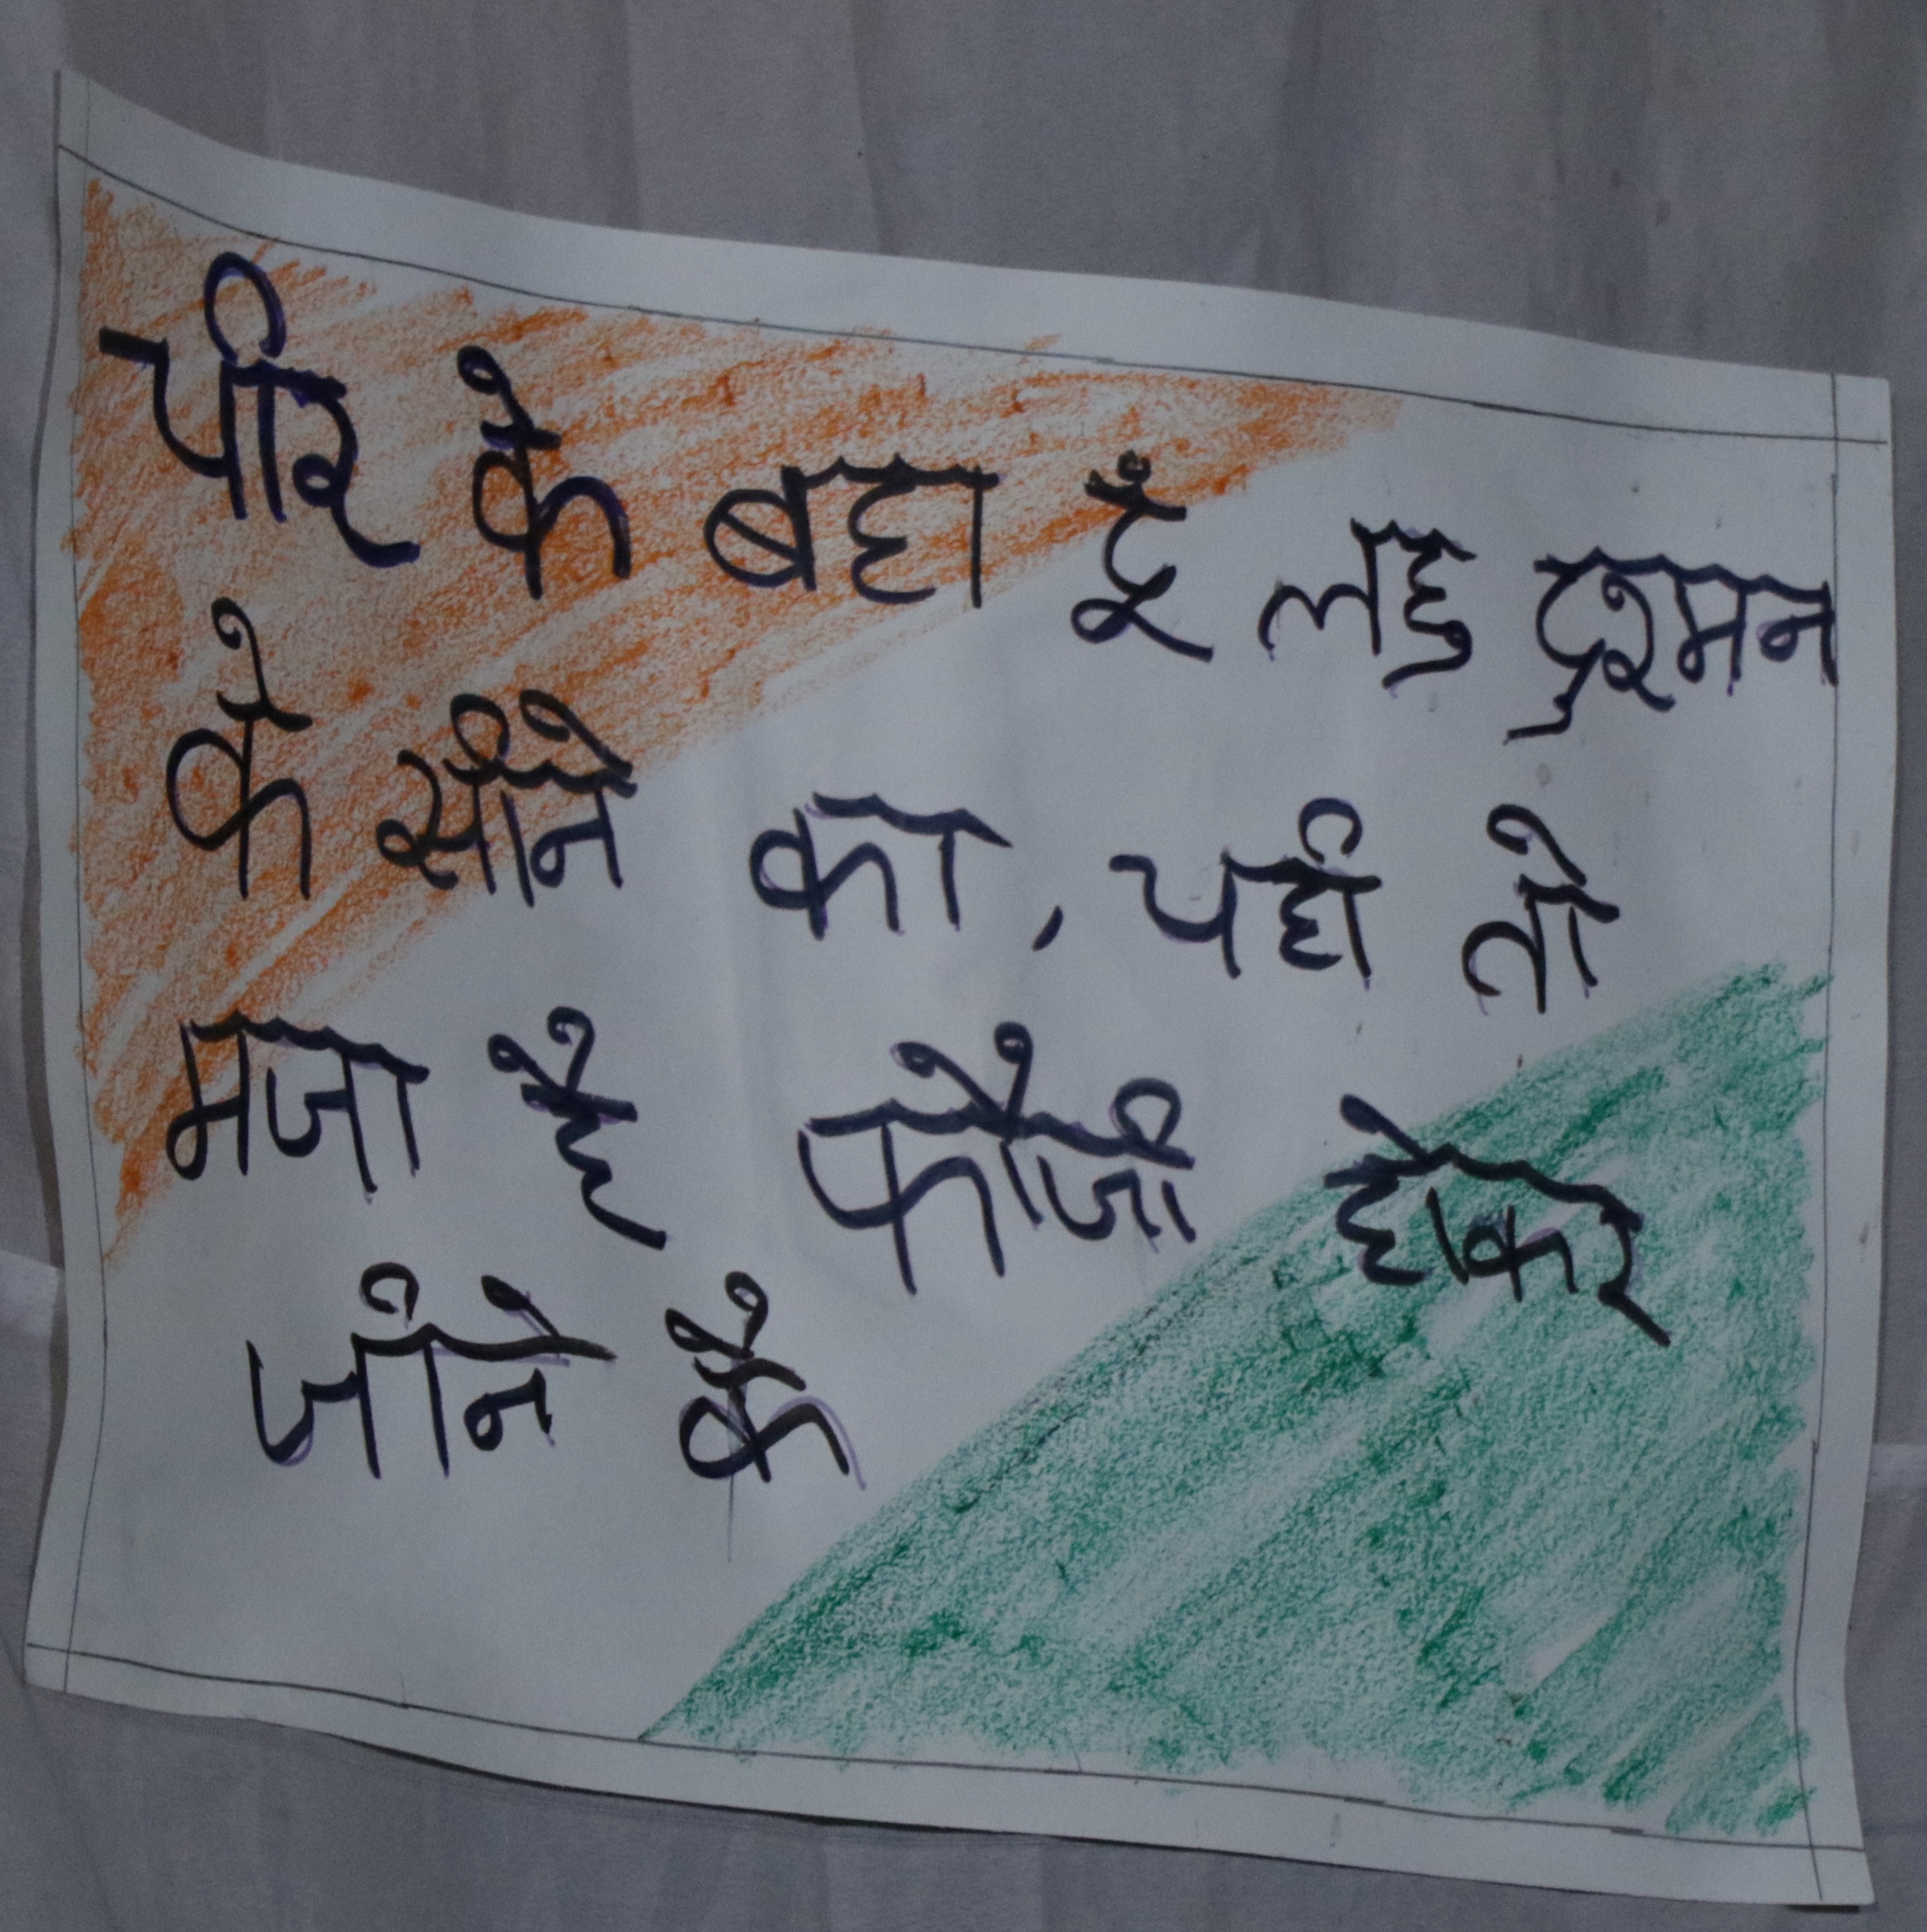 पीर के बहा दूँ लहु दुश्मन
के सीने का, यही तो
मजा है फौजी होकर
जीने कै